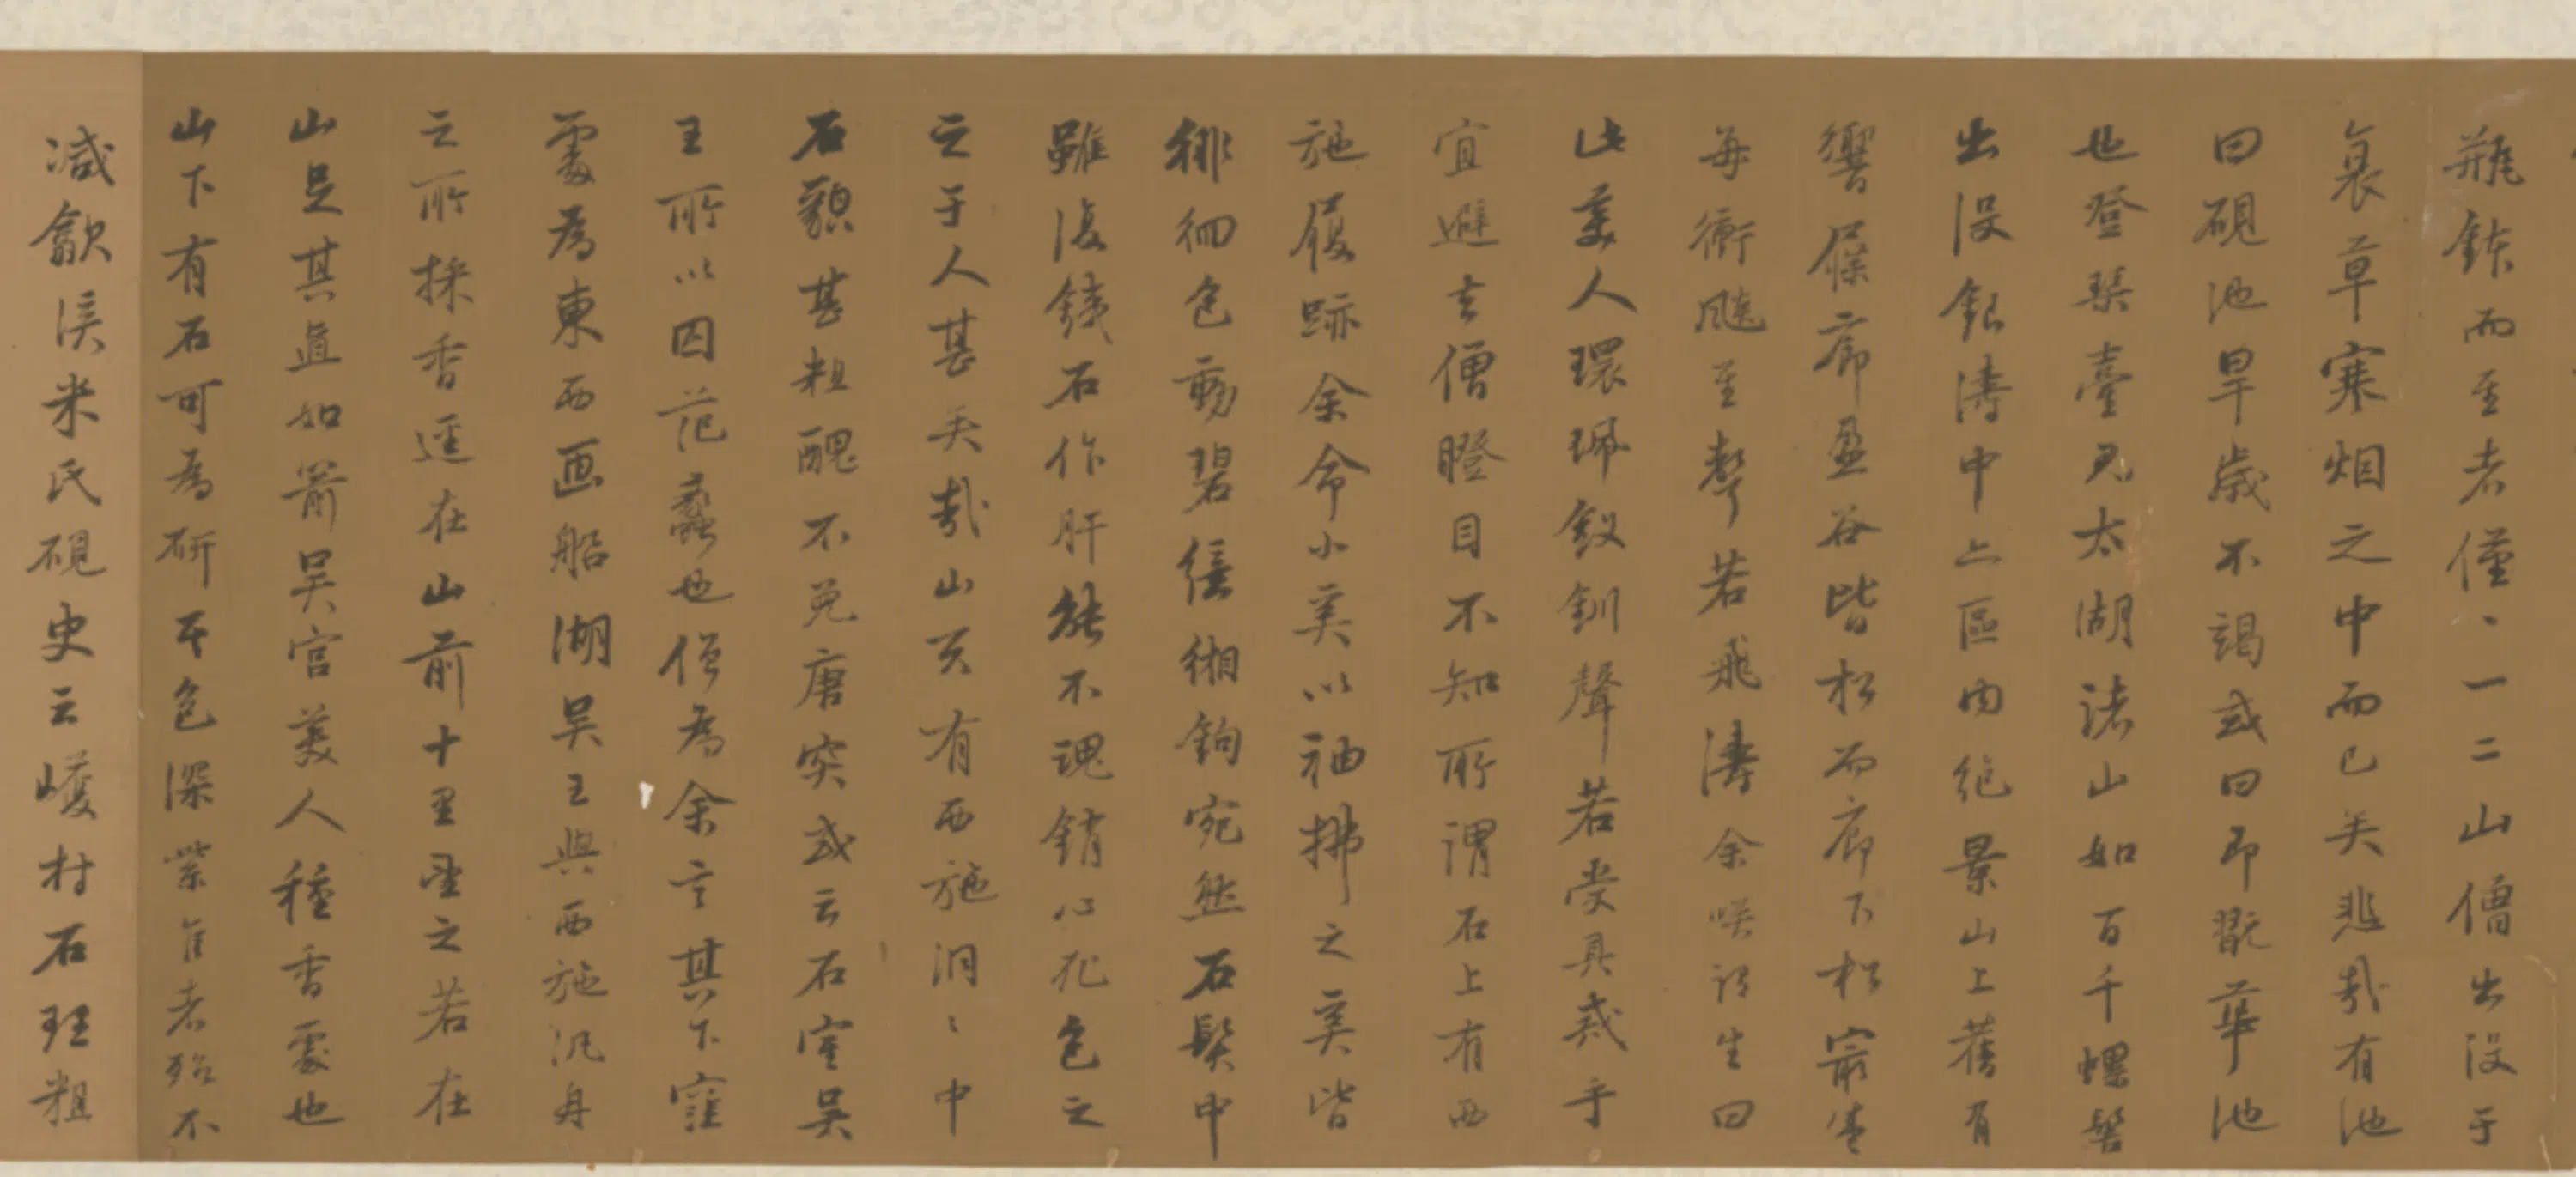 瓶鉢而至者僅、一二山僧出没于
衰草寒烟之中而已矣悲哉有池
曰硯池旱歳不竭或曰即翫華池
也登琴臺見太湖諸山如百千螺髻
出没銀濤中亦區内絶景山上舊有
響屧廊盈谷皆松而廊下松最盛
每衝飈至聲若飛濤余咲謂生曰
此美人環珮釵釧聲若受具戒乎
宜避去僧瞪目不知所謂石上有西
施履跡余命小奚以袖拂之奚皆
徘徊色動碧繶緗鉤宛然石髮中
雖復鐵石作肝能不魂銷心死色之
于人甚矣哉山頂有西施洞、中
石貌甚粗醜不免唐突或云石室吳
王所以囚范蠡也僧為余言其下窪
處為東西画船湖吳王與西施汎舟
之所採香逕在山前十里望之若在
山足其直如箭吳宮美人種香處也
山下有石可為研其色深紫佳者殆不
減歙溪米氏硯史云𡽀村石理粗